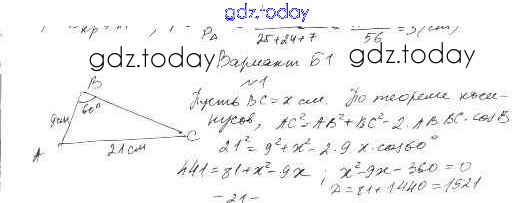 gdz.today
P_Δ = ... / 25+24+7 = ... / 56 = 3 (см)
gdz.today
Вариант Б1
gdz.today
№1
B
60°
9см
A
21см
C
Пусть BC = x см. По теореме коси-
нусов, AC² = AB² + BC² - 2·AB·BC·cosB
21² = 9² + x² - 2·9·x·cos60°
441 = 81 + x² - 9x ; x² - 9x - 360 = 0
D = 81 + 1440 = 1521
- 21 -